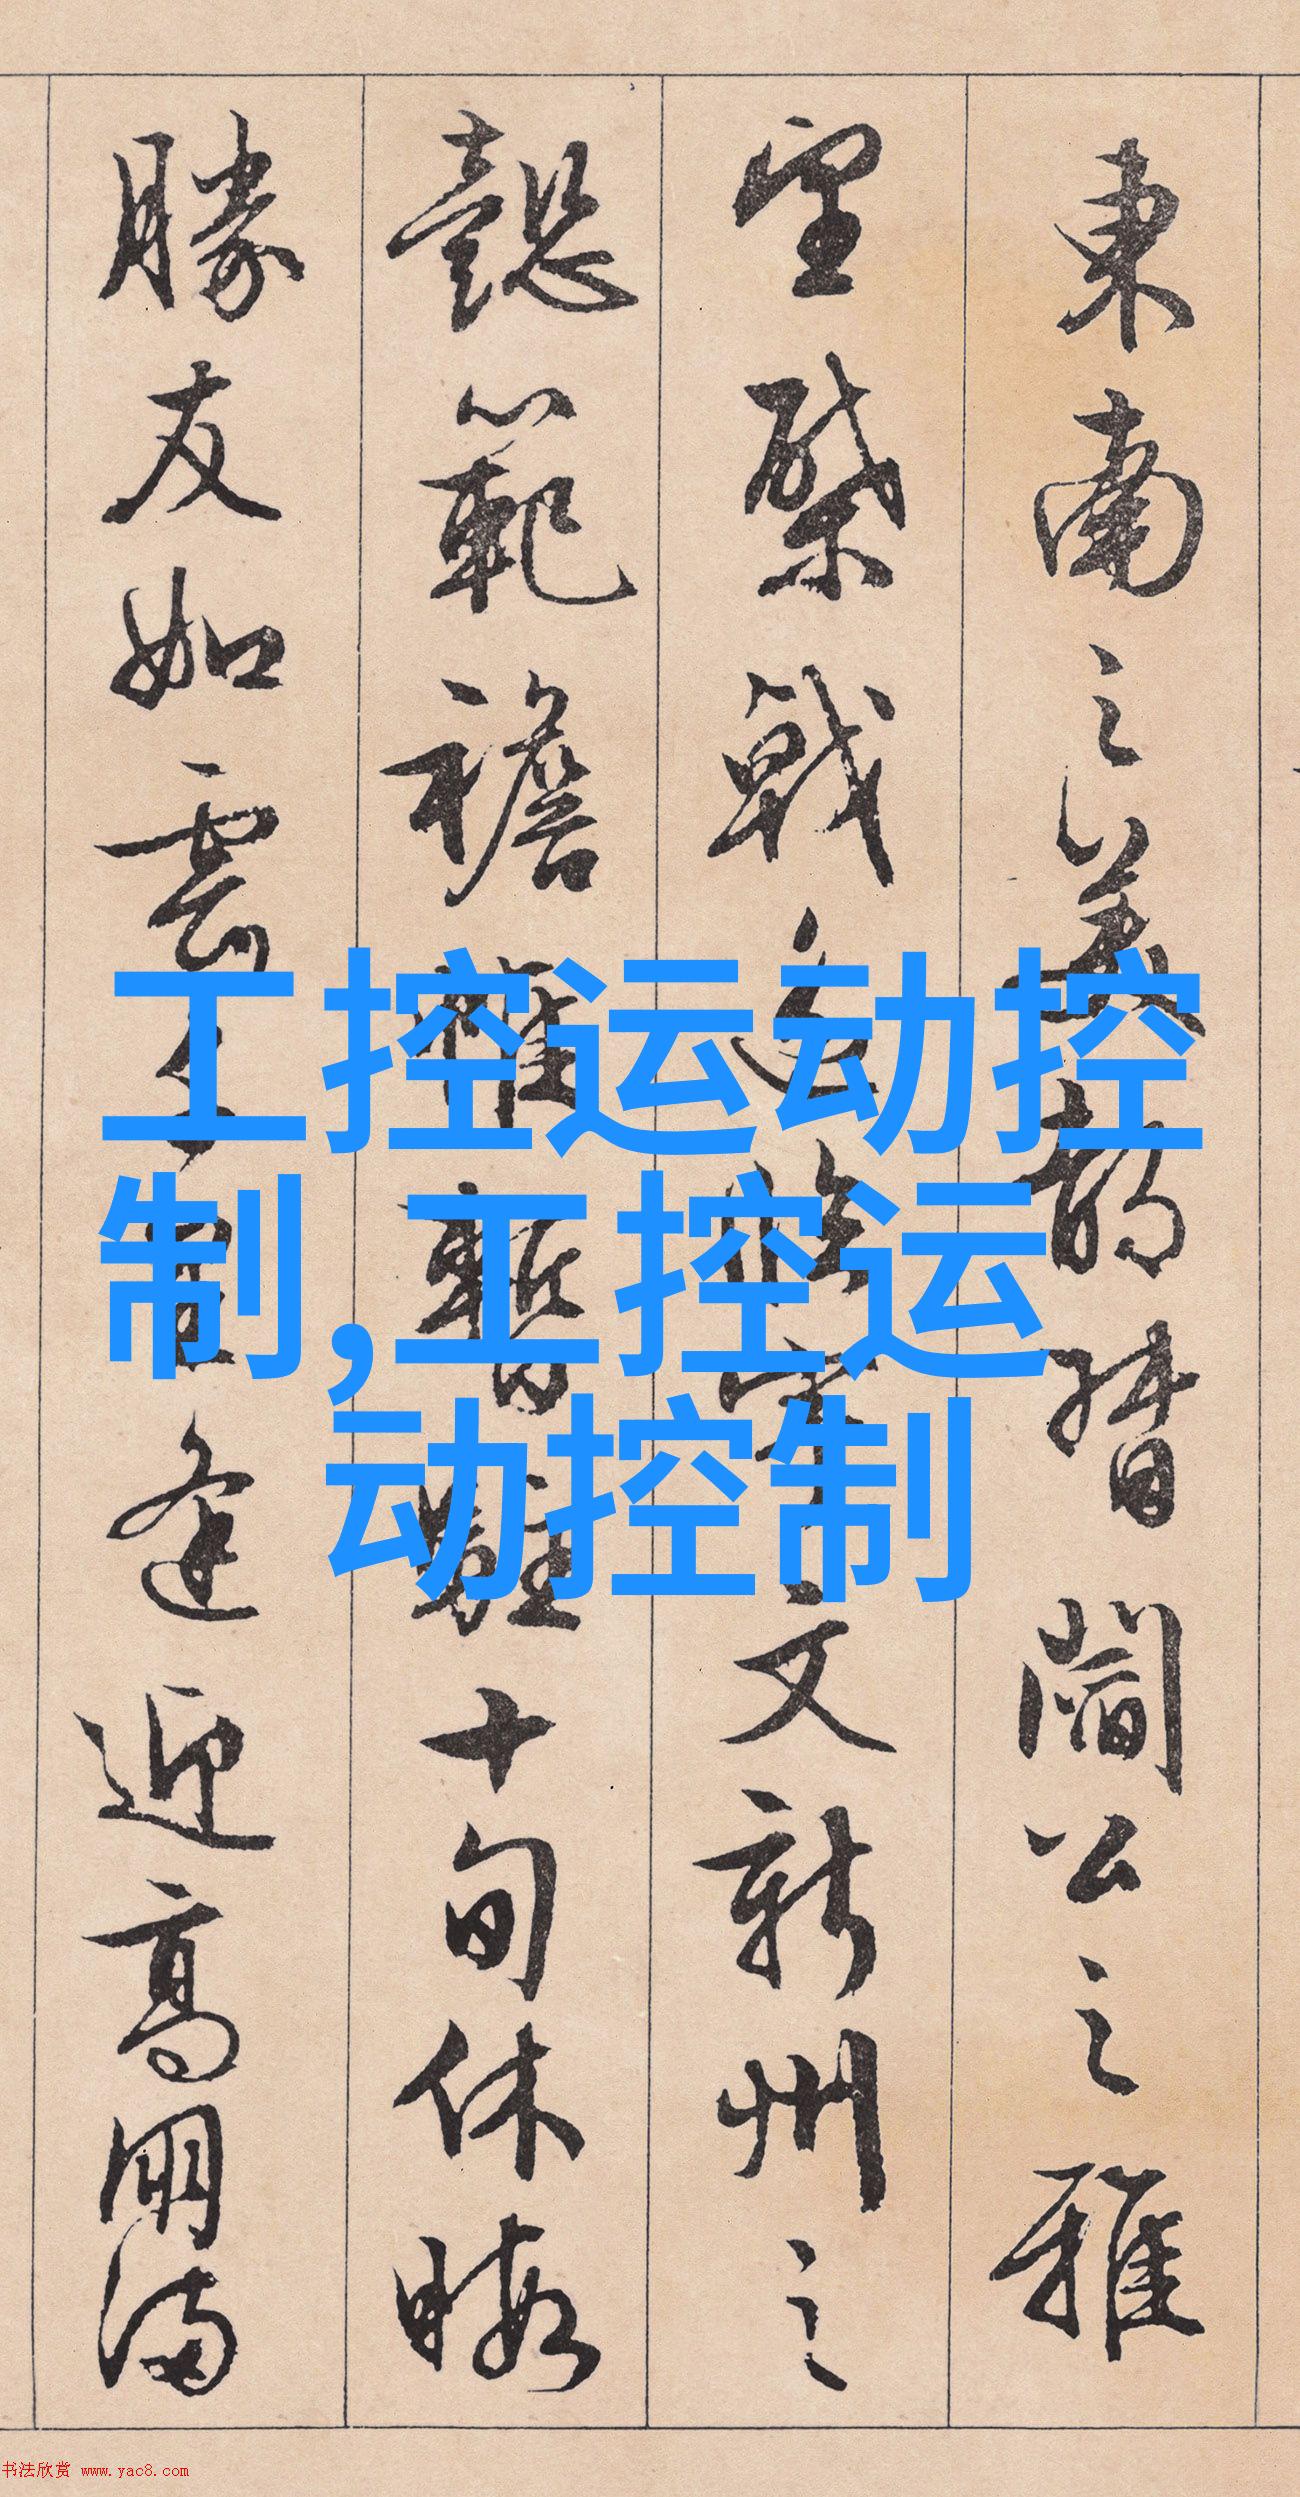 東南之美都督閻公之雅
望棨戟遥臨宇文新州之
懿範襜帷暫駐十旬休暇
勝友如雲千里逢迎高朋滿
工控运动控
制,工控运
动控制
书法欣赏 www.yac8.com